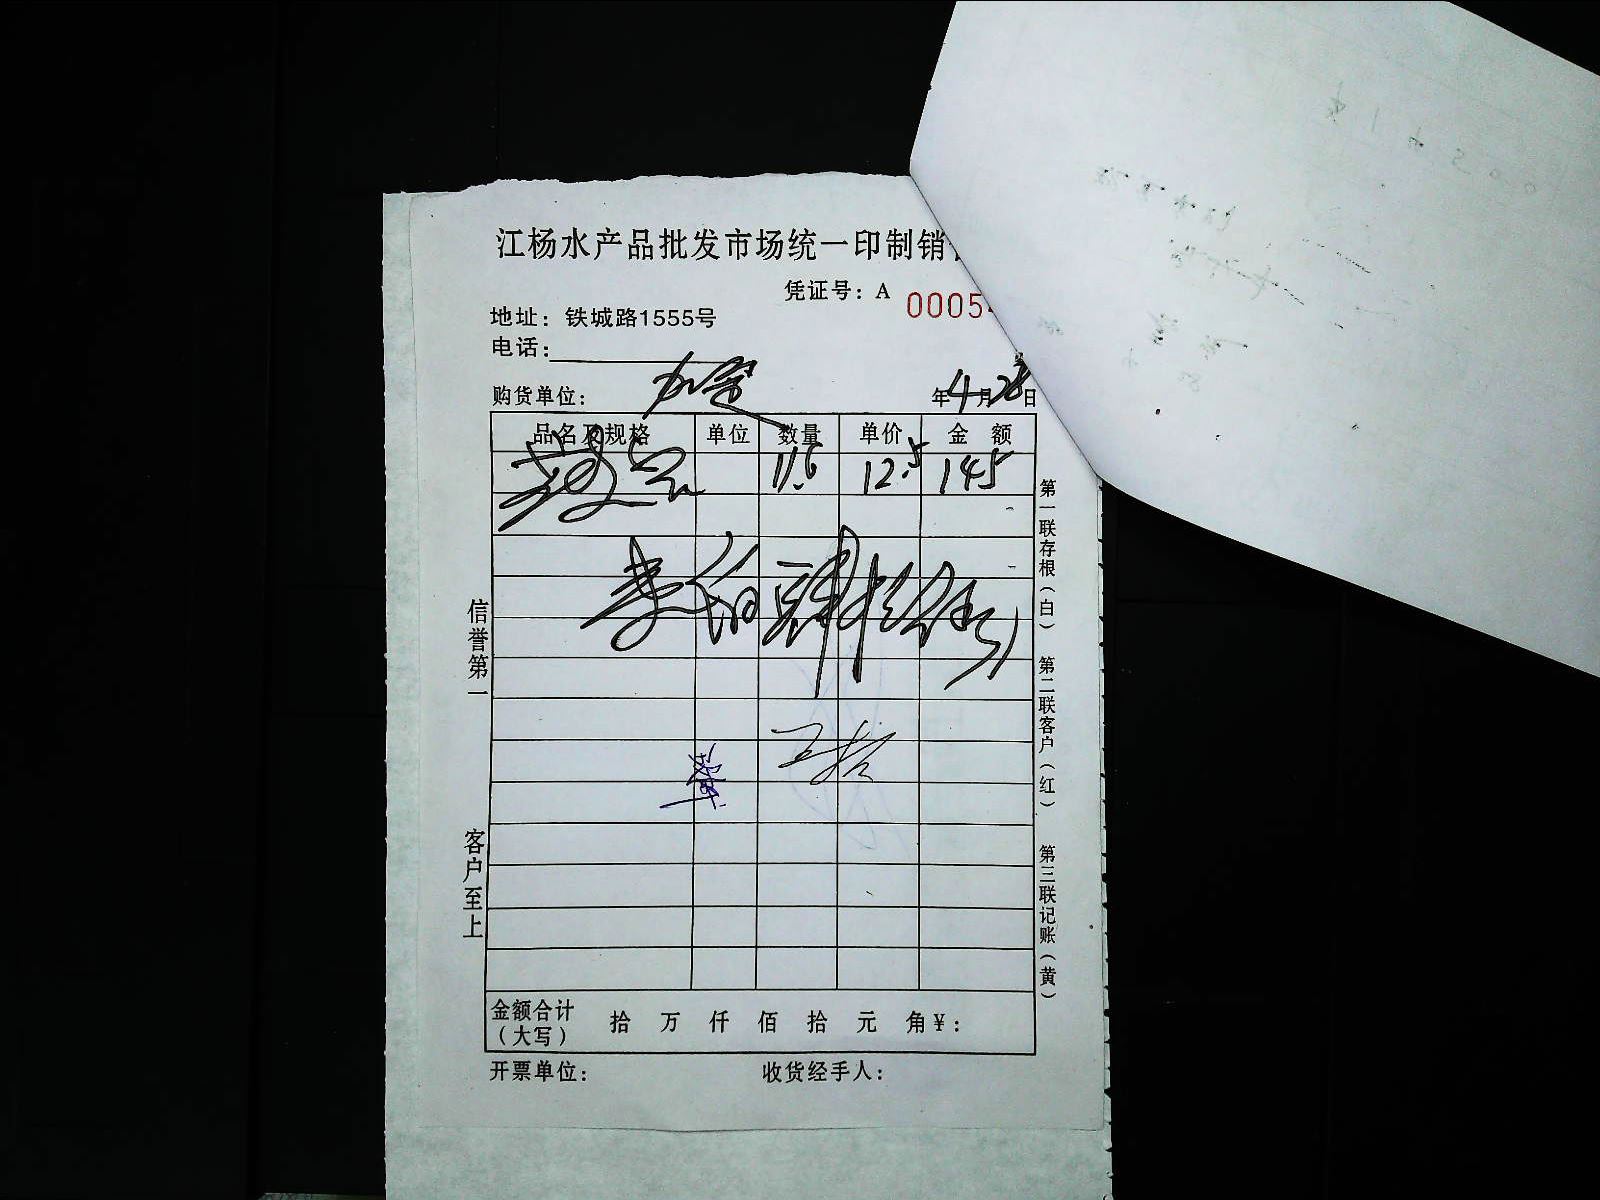 江杨水产品批发市场统一印制销
凭证号：A 0005
地址：铁城路1555号
电话：
购货单位： 年4月28日
品名及规格 单位 数量 单价 金额
11.5 12.5 145
壹佰肆拾伍
信誉第一
客户至上
第一联存根（白） 第二联客户（红） 第三联记账（黄）
金额合计（大写） 拾 万 仟 佰 拾 元 角 ¥：
开票单位： 收货经手人：